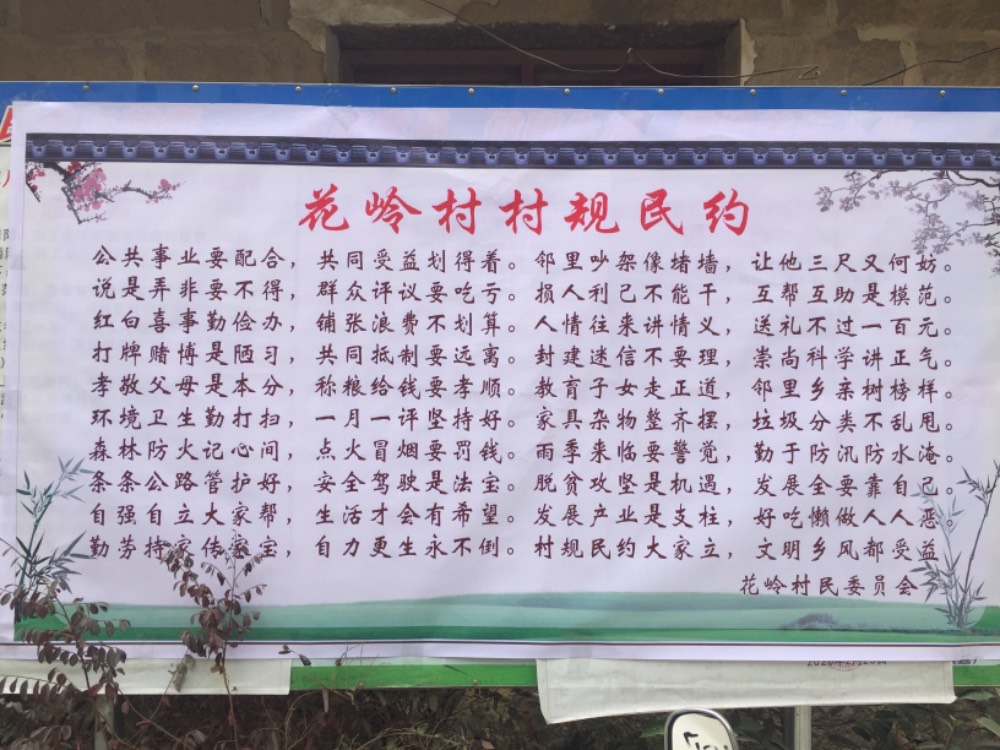 花岭村村规民约
公共事业要配合，共同受益划得着。邻里吵架像堵墙，让他三尺又何妨。
说是弄非要不得，群众评议要吃亏。损人利己不能干，互帮互助是模范。
红白喜事勤俭办，铺张浪费不划算。人情往来讲情义，送礼不过一百元。
打牌赌博是陋习，共同抵制要远离。封建迷信不要理，崇尚科学讲正气。
孝敬父母是本分，称粮给钱要孝顺。教育子女走正道，邻里乡亲树榜样。
环境卫生勤打扫，一月一评坚持好。家具杂物整齐摆，垃圾分类不乱甩。
森林防火记心间，点火冒烟要罚钱。雨季来临要警觉，勤于防汛防水淹。
条条公路管护好，安全驾驶是法宝。脱贫攻坚是机遇，发展全要靠自己。
自强自立大家帮，生活才会有希望。发展产业是支柱，好吃懒做人人恶。
勤劳持家传家宝，自力更生永不倒。村规民约大家立，文明乡风都受益
花岭村民委员会